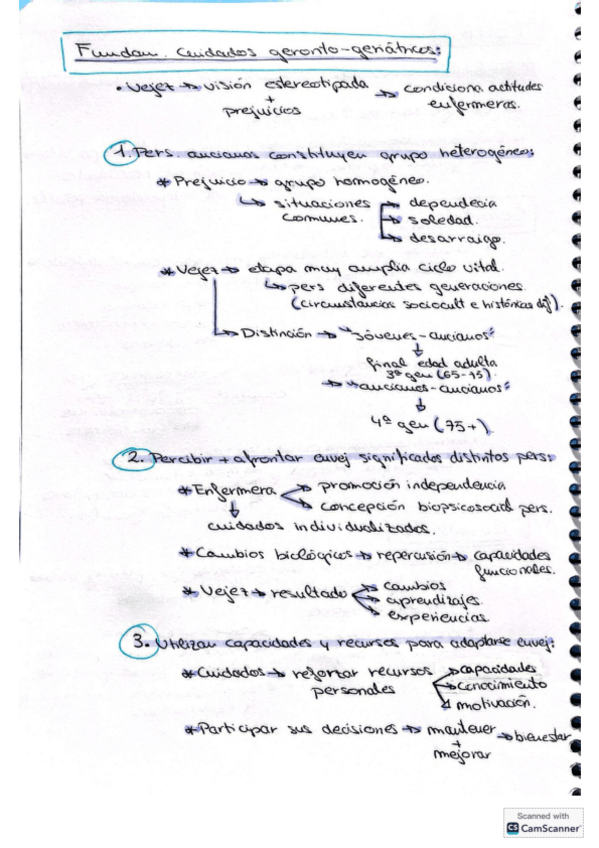 Fundam. Cuidados geronto-geriátricos:
• Vejez → visión estereotipada + prejuicios → condiciona actitudes enfermeras.
1. Pers. ancianas constituyen grupo heterogéneo:
* Prejuicio → grupo homogéneo.
↳ situaciones comunes. → dependecia
→ soledad.
→ desarraigo.
* Vejez → etapa muy amplia ciclo vital.
↳ pers diferentes generaciones.
(circunstancias sociocult e históricas dif).
↳ Distinción → "Jóvenes-ancianos"
↓
final edad adulta
3ª gen (65-75).
→ "ancianos-ancianos"
↓
4ª gen (75+)
2. Percibir + afrontar envej significados distintos pers:
* Enfermera → promoción independencia
→ concepción biopsicosocial pers.
↓
cuidados individualizados.
* Cambios biológicos → repercusión → capacidades funcionales.
* Vejez → resultado → cambios
→ aprendizajes.
→ experiencias.
3. Utilizan capacidades y recursos para adaptarse envej:
* Cuidados → reforzar recursos personales → capacidades
→ conocimiento
→ motivación.
* Participar sus decisiones → mantener + mejorar → bienestar
Scanned with
CS CamScanner